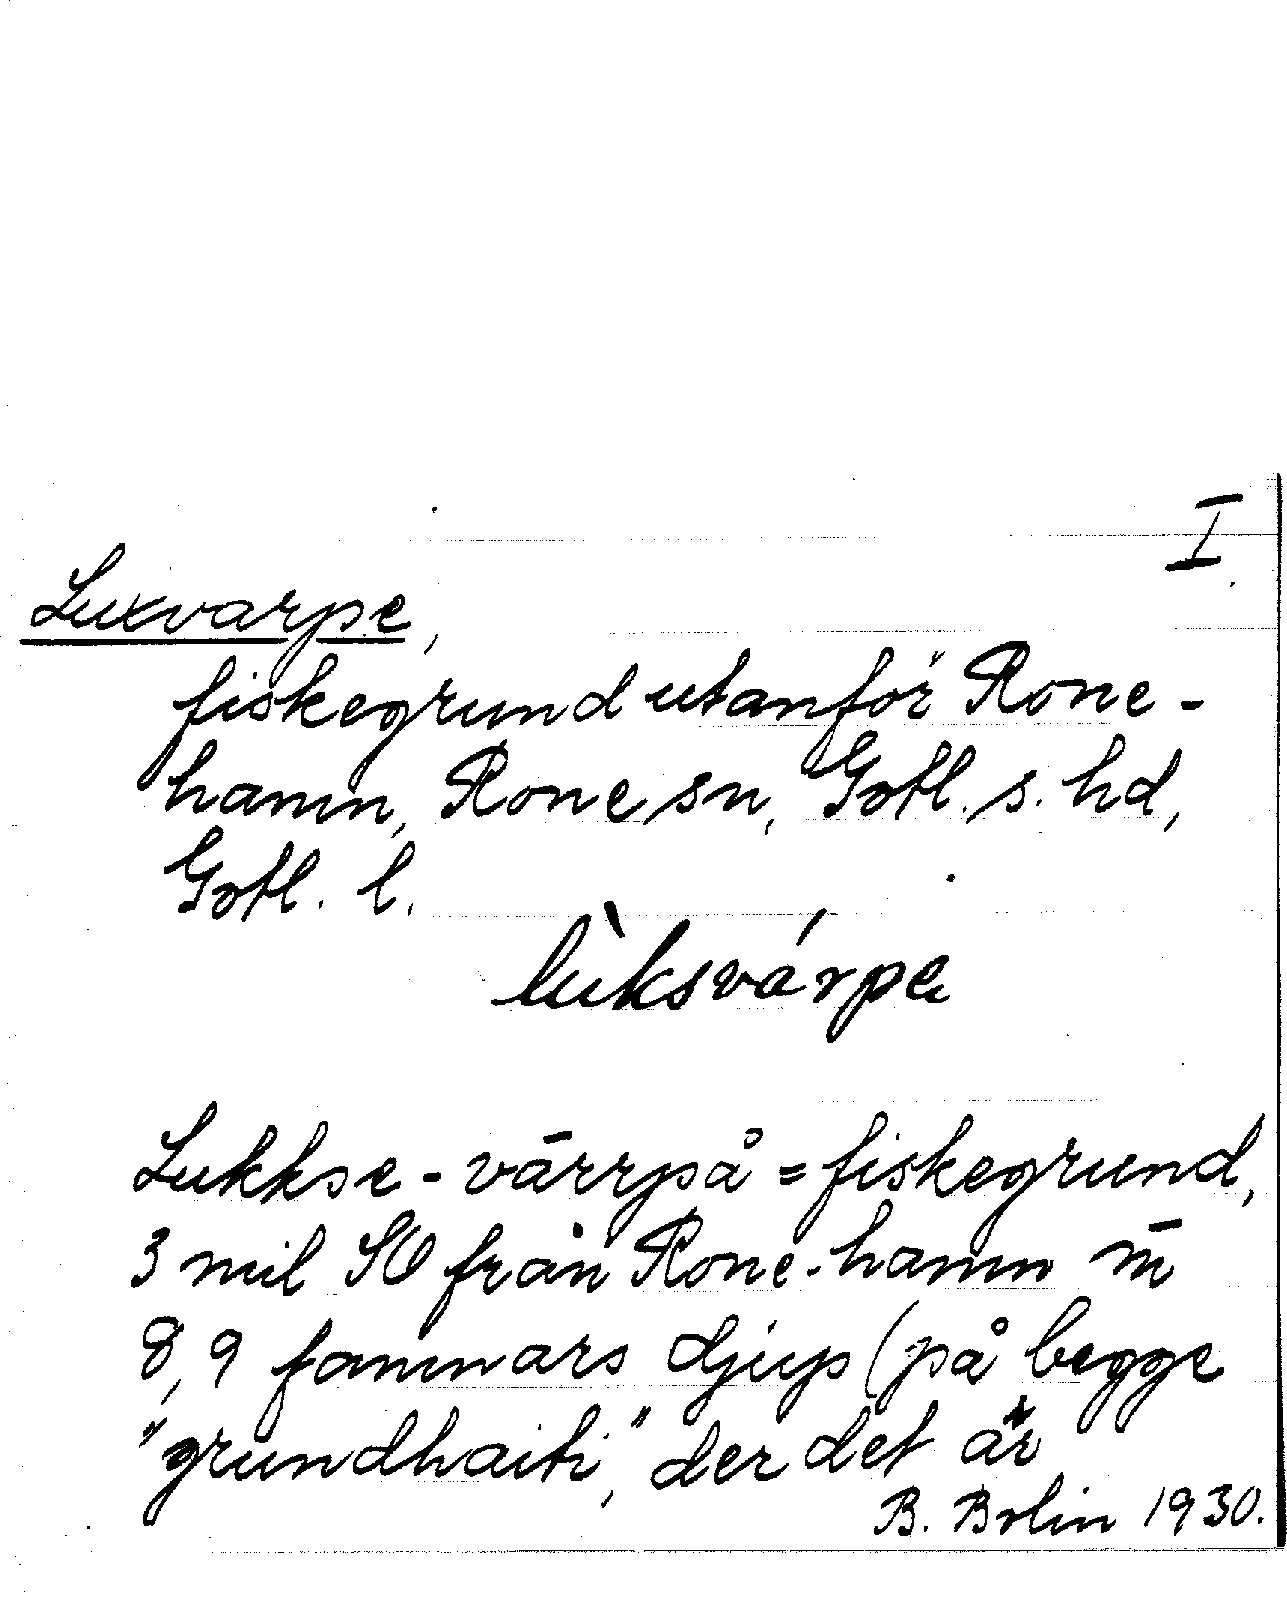 I
Luxvarpe,
fiskegrund utanför Rone-
hamn, Rone sn, Gotl. s. hd,
Gotl. l.
lùksvárpe
Lukkse-vārrpå = fiskegrund,
3 mil SO från Rone-hamn m̄
8,9 famnars djup (på begge
"grundhaiti," der det är
B. Bolin 1930.